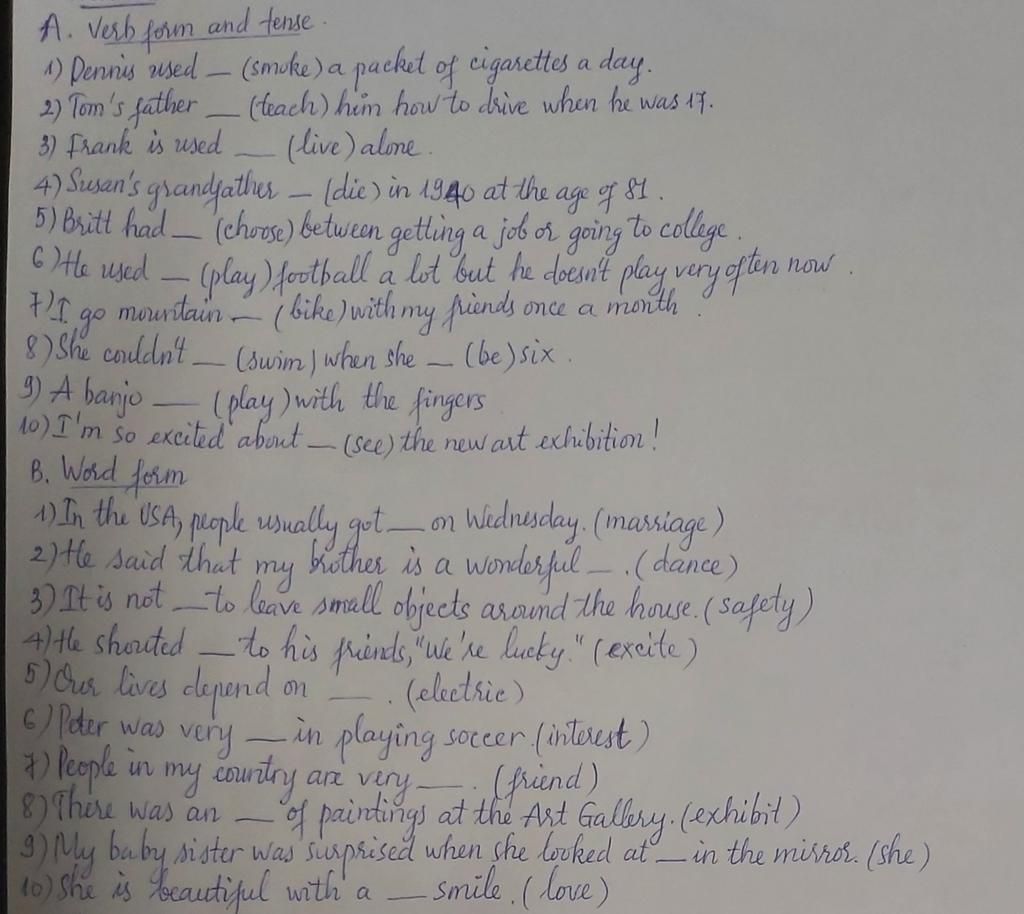 A. Verb form and tense.
1) Dennis used _ (smoke) a packet of cigarettes a day.
2) Tom's father _ (teach) him how to drive when he was 17.
3) Frank is used _ (live) alone.
4) Susan's grandfather _ (die) in 1940 at the age of 81.
5) Britt had _ (choose) between getting a job or going to college.
6) He used _ (play) football a lot but he doesn't play very often now.
7) I go mountain _ (bike) with my friends once a month.
8) She couldn't _ (swim) when she _ (be) six.
9) A banjo _ (play) with the fingers
10) I'm so excited about _ (see) the new art exhibition!
B. Word form
1) In the USA, people usually got _ on Wednesday. (marriage)
2) He said that my brother is a wonderful _ . (dance)
3) It is not _ to leave small objects around the house. (safety)
4) He shouted _ to his friends, "We're lucky." (excite)
5) Our lives depend on _ . (electric)
6) Peter was very _ in playing soccer. (interest)
7) People in my country are very _ . (friend)
8) There was an _ of paintings at the Art Gallery. (exhibit)
9) My baby sister was surprised when she looked at _ in the mirror. (she)
10) She is beautiful with a _ smile. (love)